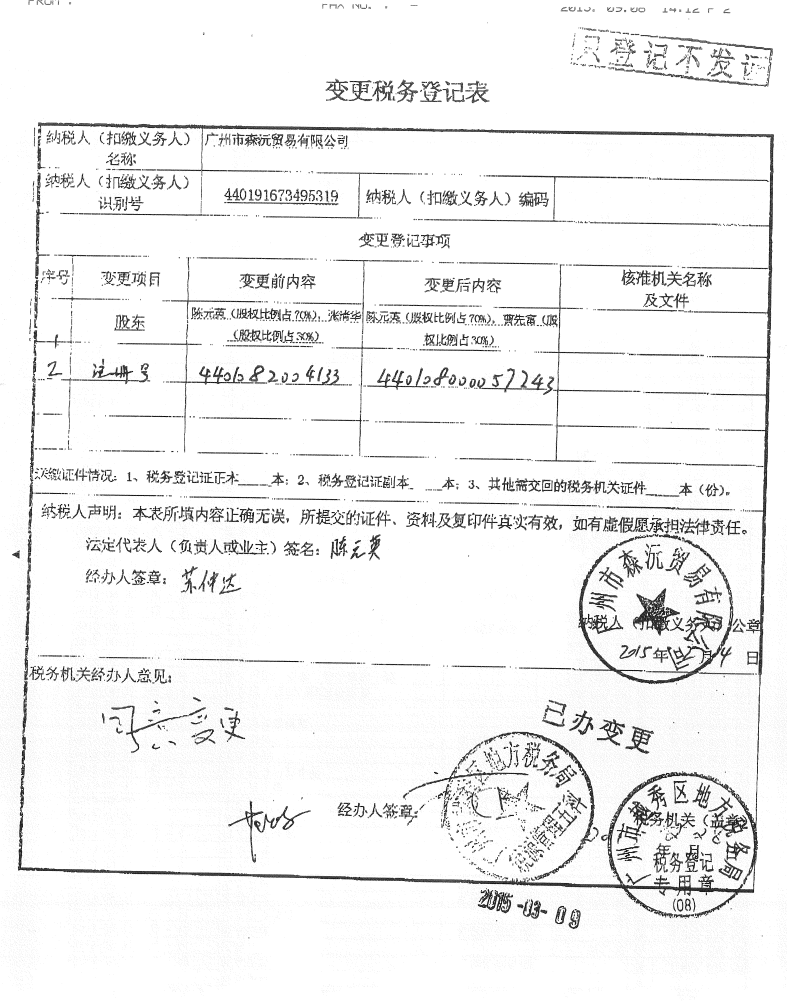 FROM :
FAX NO. :
2015. 09.08 14:12 P 2
只登记不发证
变更税务登记表
纳税人（扣缴义务人）名称
广州市森沅贸易有限公司
纳税人（扣缴义务人）识别号
440191673495319
纳税人（扣缴义务人）编码
变更登记事项
序号 变更项目 变更前内容 变更后内容 核准机关名称及文件
1 股东
陈元英（股权比例占70%），张清华（股权比例占30%）
陈元英（股权比例占70%），曹先富（股权比例占30%）
2 注册号 4401082004133 440108000057243
送缴证件情况：1、税务登记证正本____本；2、税务登记证副本____本；3、其他需交回的税务机关证件____本（份）。
纳税人声明：本表所填内容正确无误，所提交的证件、资料及复印件真实有效，如有虚假愿承担法律责任。
法定代表人（负责人或业主）签名：陈元英
经办人签章：
广州市森沅贸易有限公司
纳税人（扣缴义务人）公章
2015年2月14日
税务机关经办人意见：
同意变更
已办变更
经办人签章：
地方税务局
广州市越秀区地方税务局
税务机关（盖章）
年 月
税务登记
专用章
(08)
2015-03-09